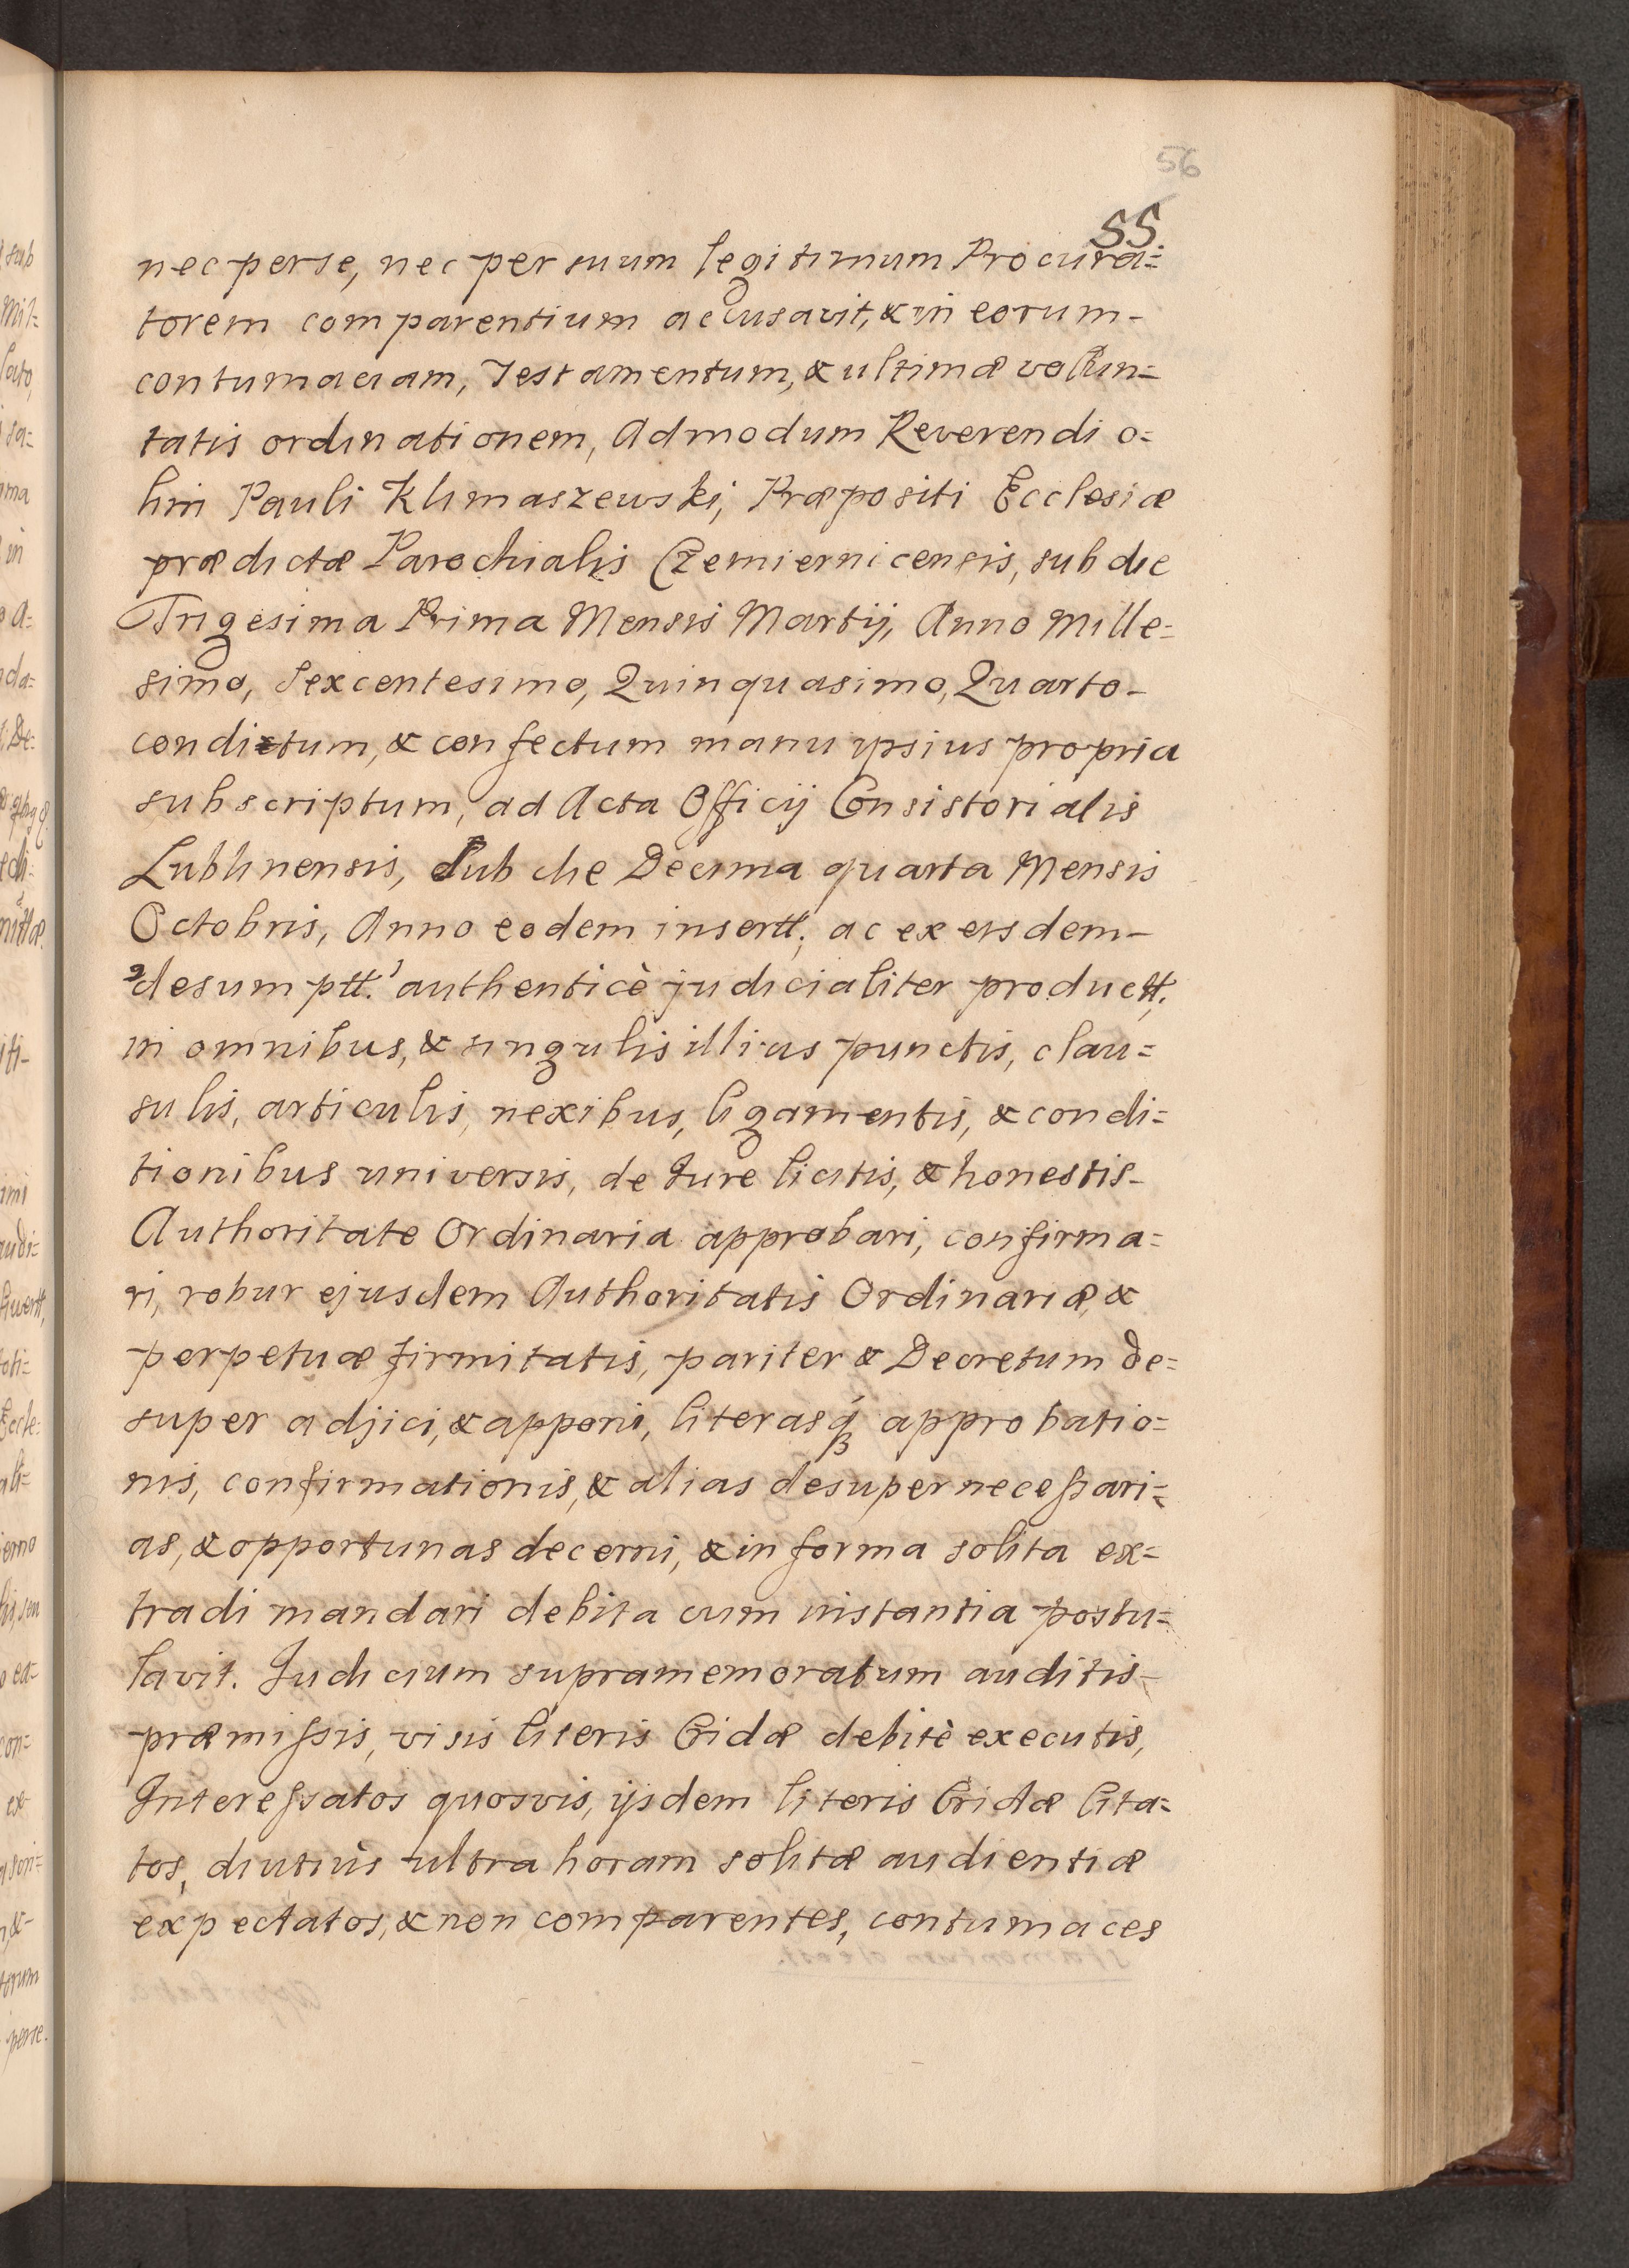 56
55.
nec per se, nec per suum legitimum Procura=
torem comparentium accusavit, & in eorum-
contumaciam, Testamentum, & ultimæ volun=
tatis ordinationem, Admodum Reverendi o=
lim Pauli Klimaszewski, Præpositi Ecclesiæ
prædictæ Parochialis Czemiernicensis, sub die
Trigesima Prima Mensis Martij, Anno Mille=
simo, Sexcentesimo, Quinquasimo, Quarto-
condictum, & confectum manu ipsius propria
subscriptum, ad Acta Officij Consistorialis
Lublinensis, Sub die Decima quarta Mensis
Octobris, Anno eodem insertt. ac ex eisdem-
desumptt. authenticè judicialiter productt,
in omnibus, & singulis illius punctis, clau=
sulis, articulis, nexibus, ligamentis, & condi=
tionibus universis, de Jure licitis, & honestis-
Authoritate Ordinaria approbari, confirma=
ri, robur ejusdem Authoritatis Ordinariæ, &
perpetuæ firmitatis, pariter & Decretum de=
super adjici, & apponi, literasq́ʒ approbatio=
nis, confirmationis, & alias desuper necessari=
as, & opportunas decerni, & in forma solita ex=
tradi mandari debita cum instantia postu=
lavit. Judicium supramemoratum auditis-
præmissis, visis literis Cridæ debitè executis,
Interessatos quosvis, ijsdem literis Cridæ Cita=
tos, diutiùs ultra horam solitæ audientiæ
expectatos, & non comparentes, contumaces